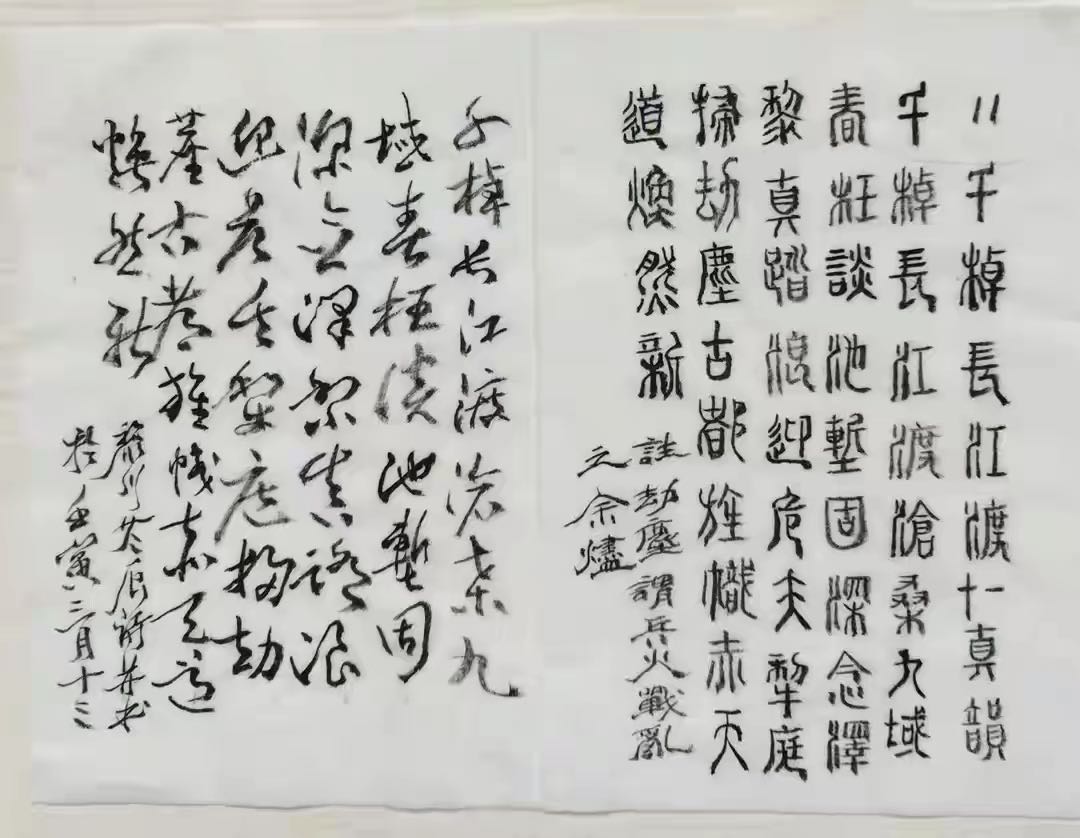 〃千棹長江渡十一真韻
千棹長江渡滄桑九域
春枉談池塹固深念澤
黎真踏浪迎危夫犁庭
掃劫塵古都旌幟赤天
道煥然新
註劫塵謂兵火戰亂
之余燼
千棹長江渡滄桑九
域春枉談池塹固
深念澤黎真踏浪
迎危夫犁庭掃劫
塵古都旌幟赤天道
煥然新
詩并书
於壬寅三月十三